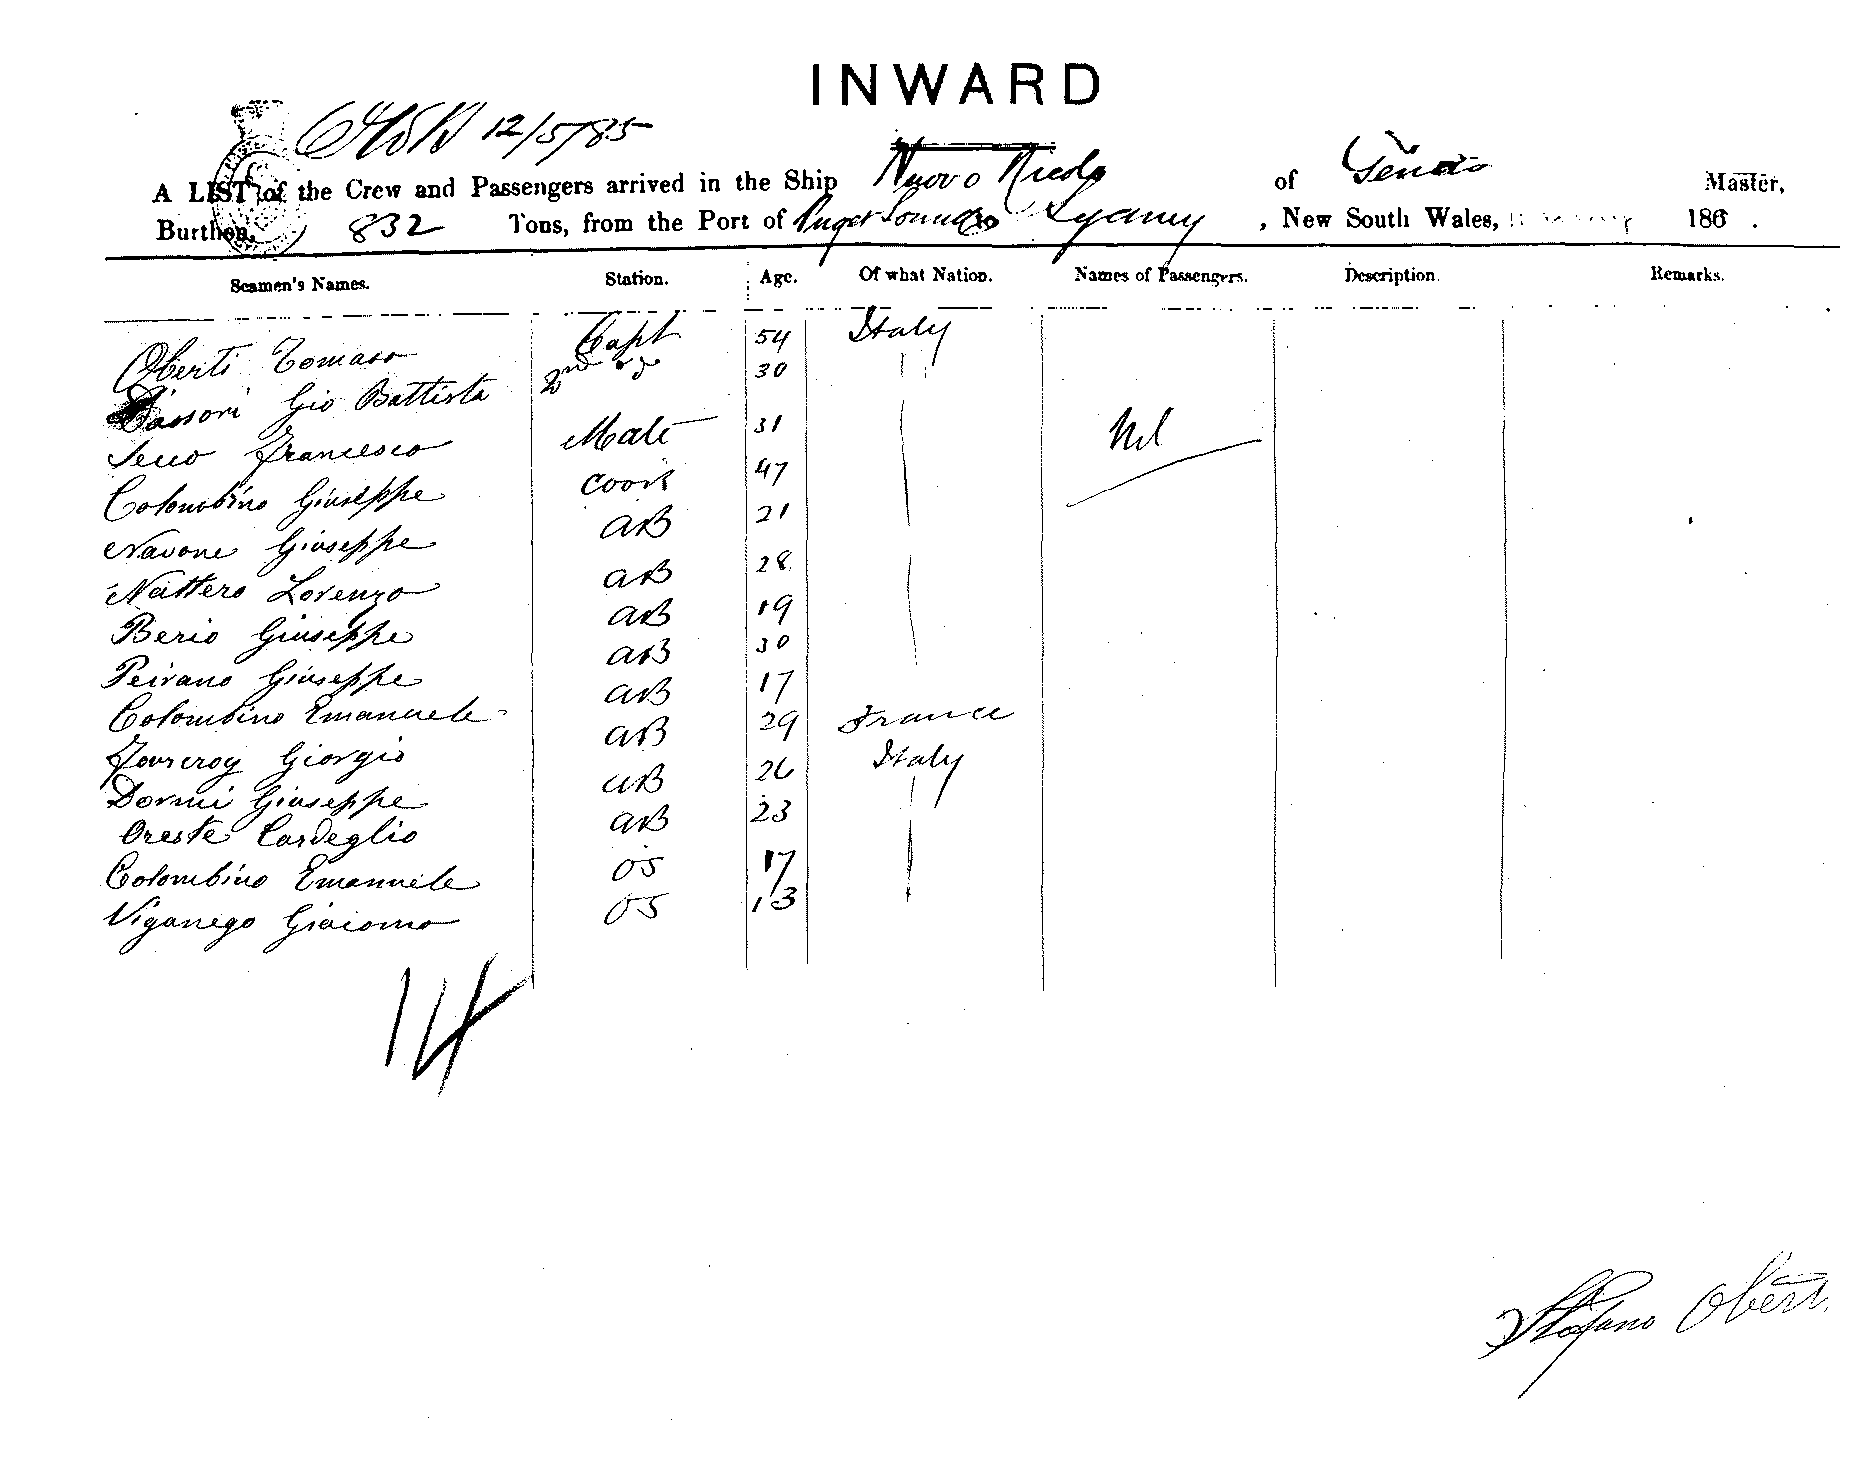 INWARD
12/5/85
A LIST of the Crew and Passengers arrived in the Ship Nuovo Nicola of Genoa Master,
Burthen, 832 Tons, from the Port of Puget Sound to Sydney, New South Wales, 186 .
Seamen's Names. Station. Age. Of what Nation. Names of Passengers. Description. Remarks.
Oberti Tomaso Capt 54 Italy
Gio Battista 2nd 30
Secco Francesco Mate 31 Nil
Colombino Giuseppe Cook 47
Navone Giuseppe AB 21
Nattero Lorenzo AB 28
Berio Giuseppe AB 19
Peirano Giuseppe AB 30
Colombino Emanuele AB 17
Fourcroy Giorgio AB 29 France
Dormi Giuseppe AB 26 Italy
Oreste Cardeglio AB 23
Colombino Emanuele OS 17
Viganego Giacomo OS 13
14
Stefano Oberti